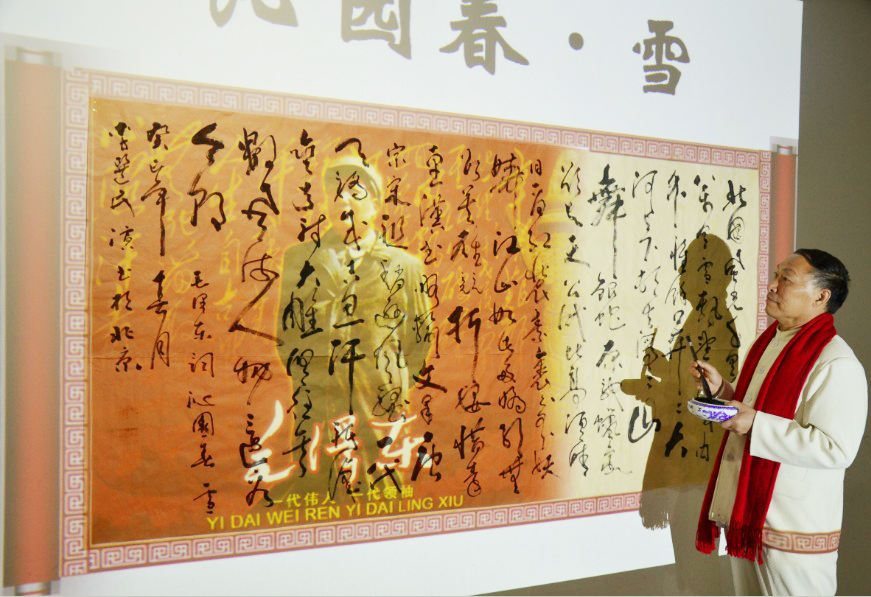 沁园春·雪
北国风光千里
万里雪飘望长城内
外惟余莽莽大
河上下顿失滔滔山
舞银蛇原驰蜡象
欲与天公试比高须晴
日看红装素裹分外妖
娆江山如此多娇引无
数英雄竞折腰惜秦
皇汉武略输文采唐
宗宋祖稍逊风骚一代
天骄成吉思汗只识
弯弓射大雕俱往矣
数风流人物还看
今朝
毛泽东词沁园春雪
癸巳年春月
书于北京
毛泽东
一代伟人 一代领袖
YI DAI WEI REN YI DAI LING XIU